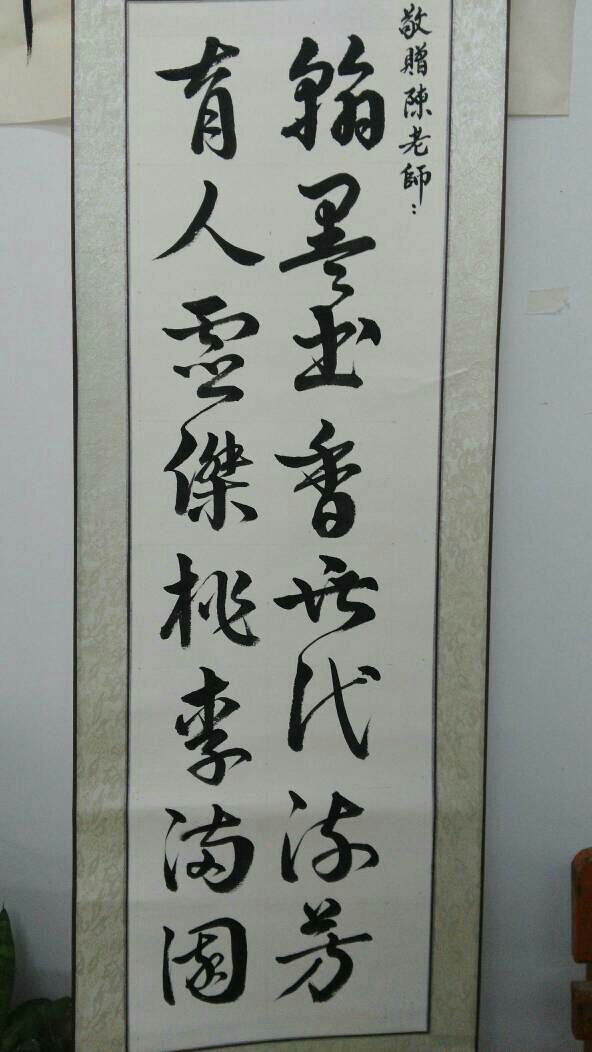 敬贈陳老師：
翰墨書香世代流芳
育人靈傑桃李滿園